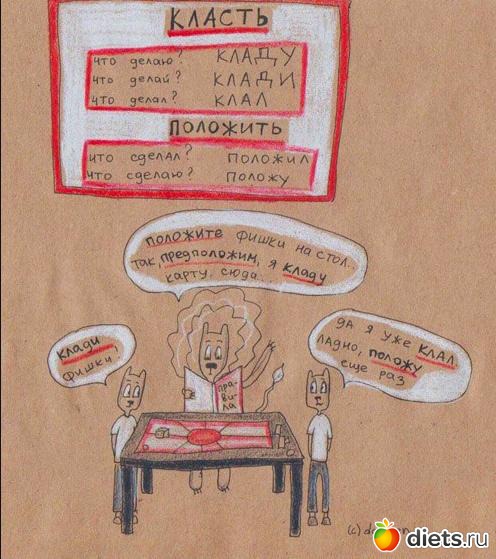 КЛАСТЬ
что делаю? КЛАДУ
что делай? КЛАДИ
что делал? КЛАЛ
ПОЛОЖИТЬ
что сделал? ПОЛОЖИЛ
что сделаю? ПОЛОЖУ
положите фишки на стол..
так, предположим, я кладу
карту, сюда...
клади
фишки
да я уже клал
ладно, положу
еще раз
пра-
ви-
ла
(c)
diets.ru